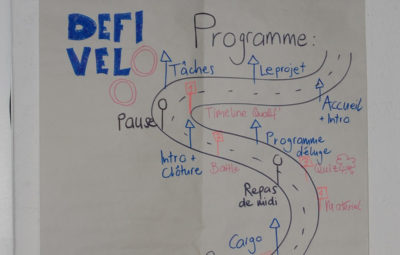 DEFI
VELO
Programme:
Tâches
Le projet
Accueil
+ Intro
Timeline
Pause
Intro +
Clôture
Battle
Programme
déluge
Quiz
Repas
de midi
Matériel
Cargo